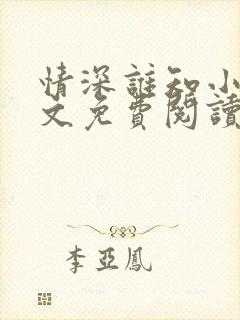 情深誰知小
文免費閱讀
李亞鳳